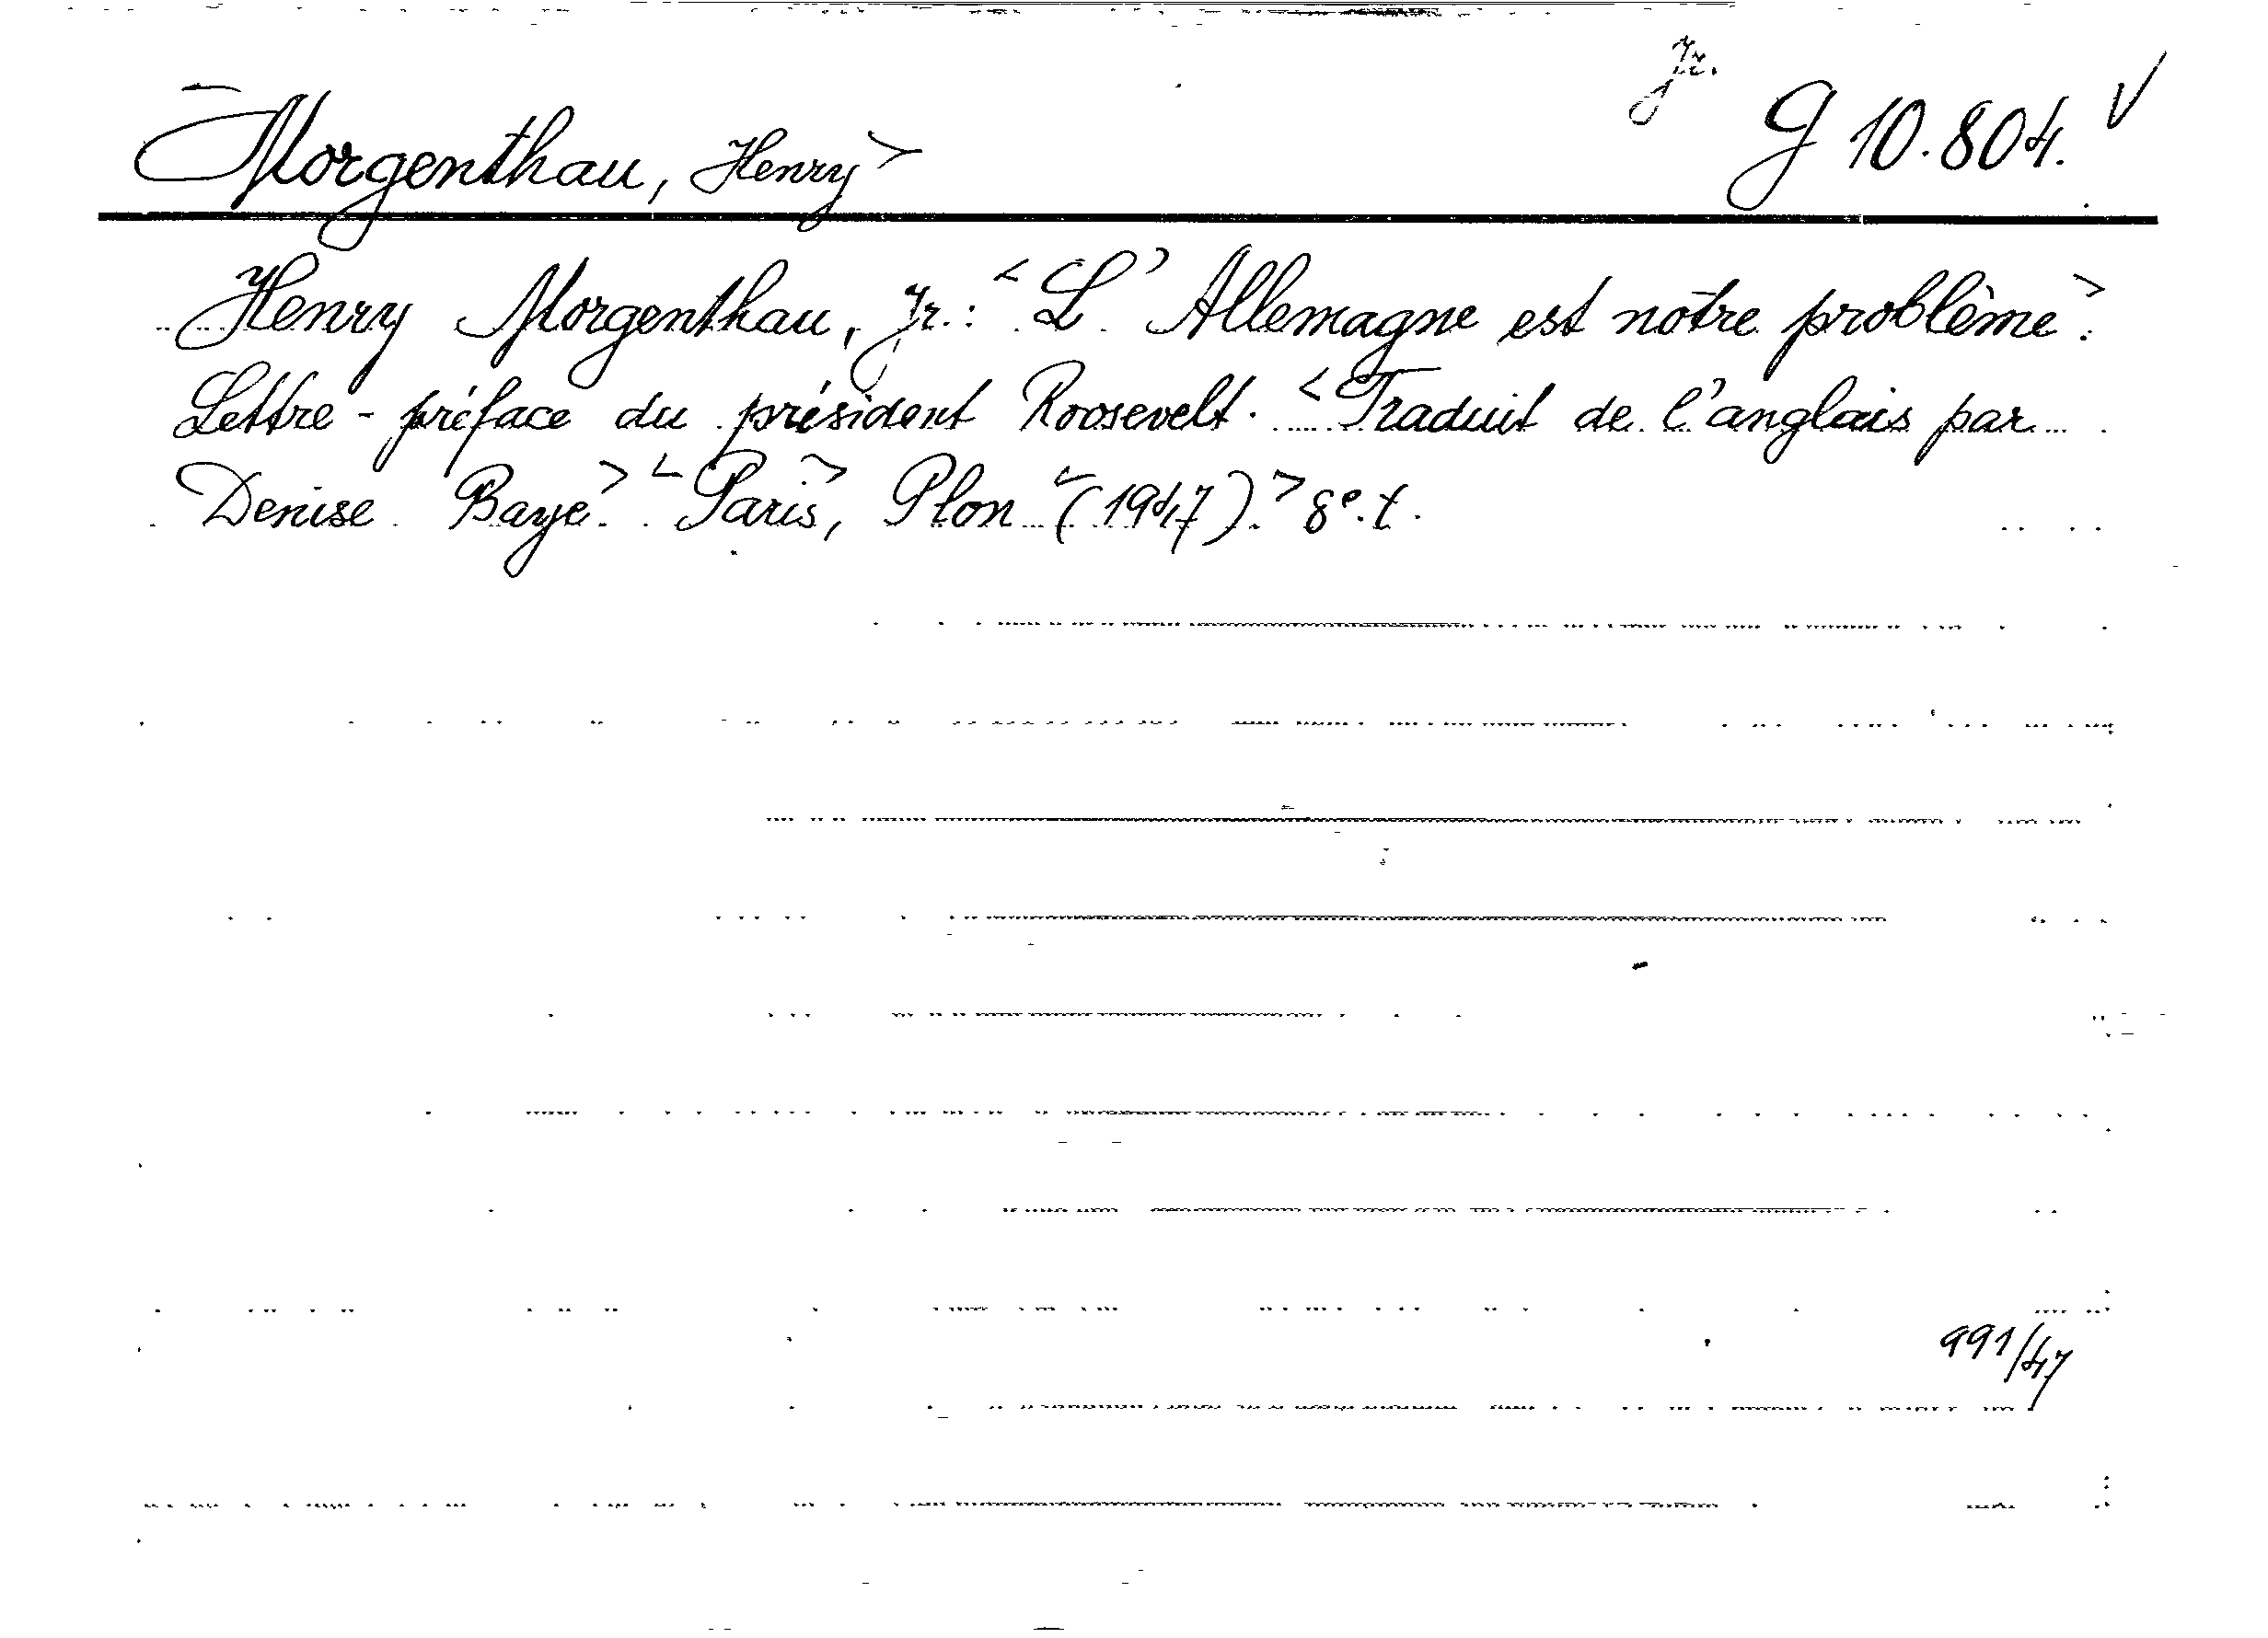 Morgenthau, Henry> Jr. G 10.804. V
Henry Morgenthau, Jr.: <L'Allemagne est nôtre problème>.
Lettre-préface du président Roosevelt. <Traduit de l'anglais par
Denise Baye.> <Paris>, Plon <(1947).> 8°.t.
991/47